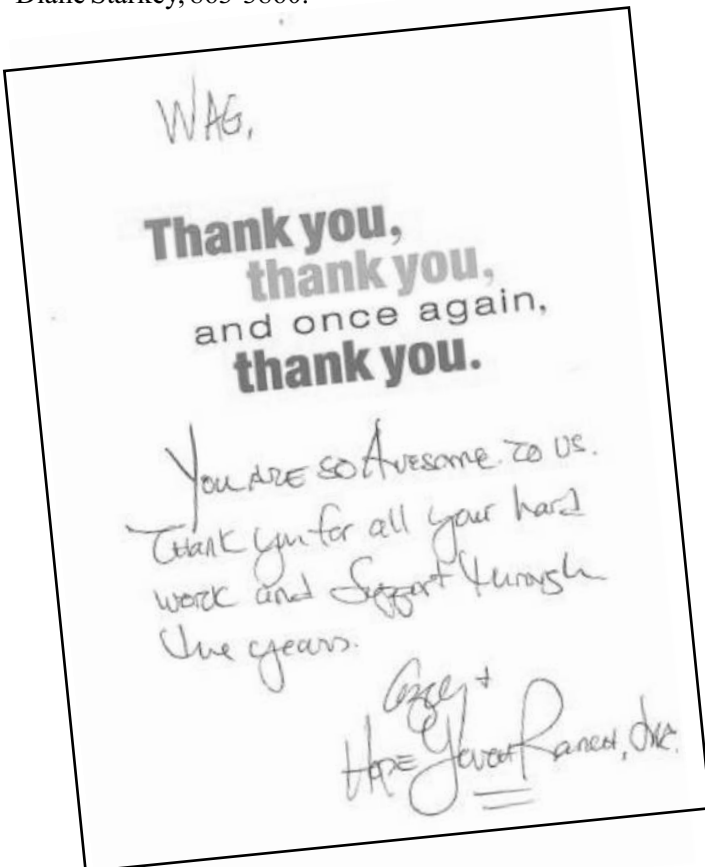 Diane Starkey, 863-5800.
WAG,
Thank you,
thank you,
and once again,
thank you.
You ARE SO AWESOME TO US.
THANK you for all your hard
work and Support through
the years.
+
HOPE Youth Ranch, Inc.